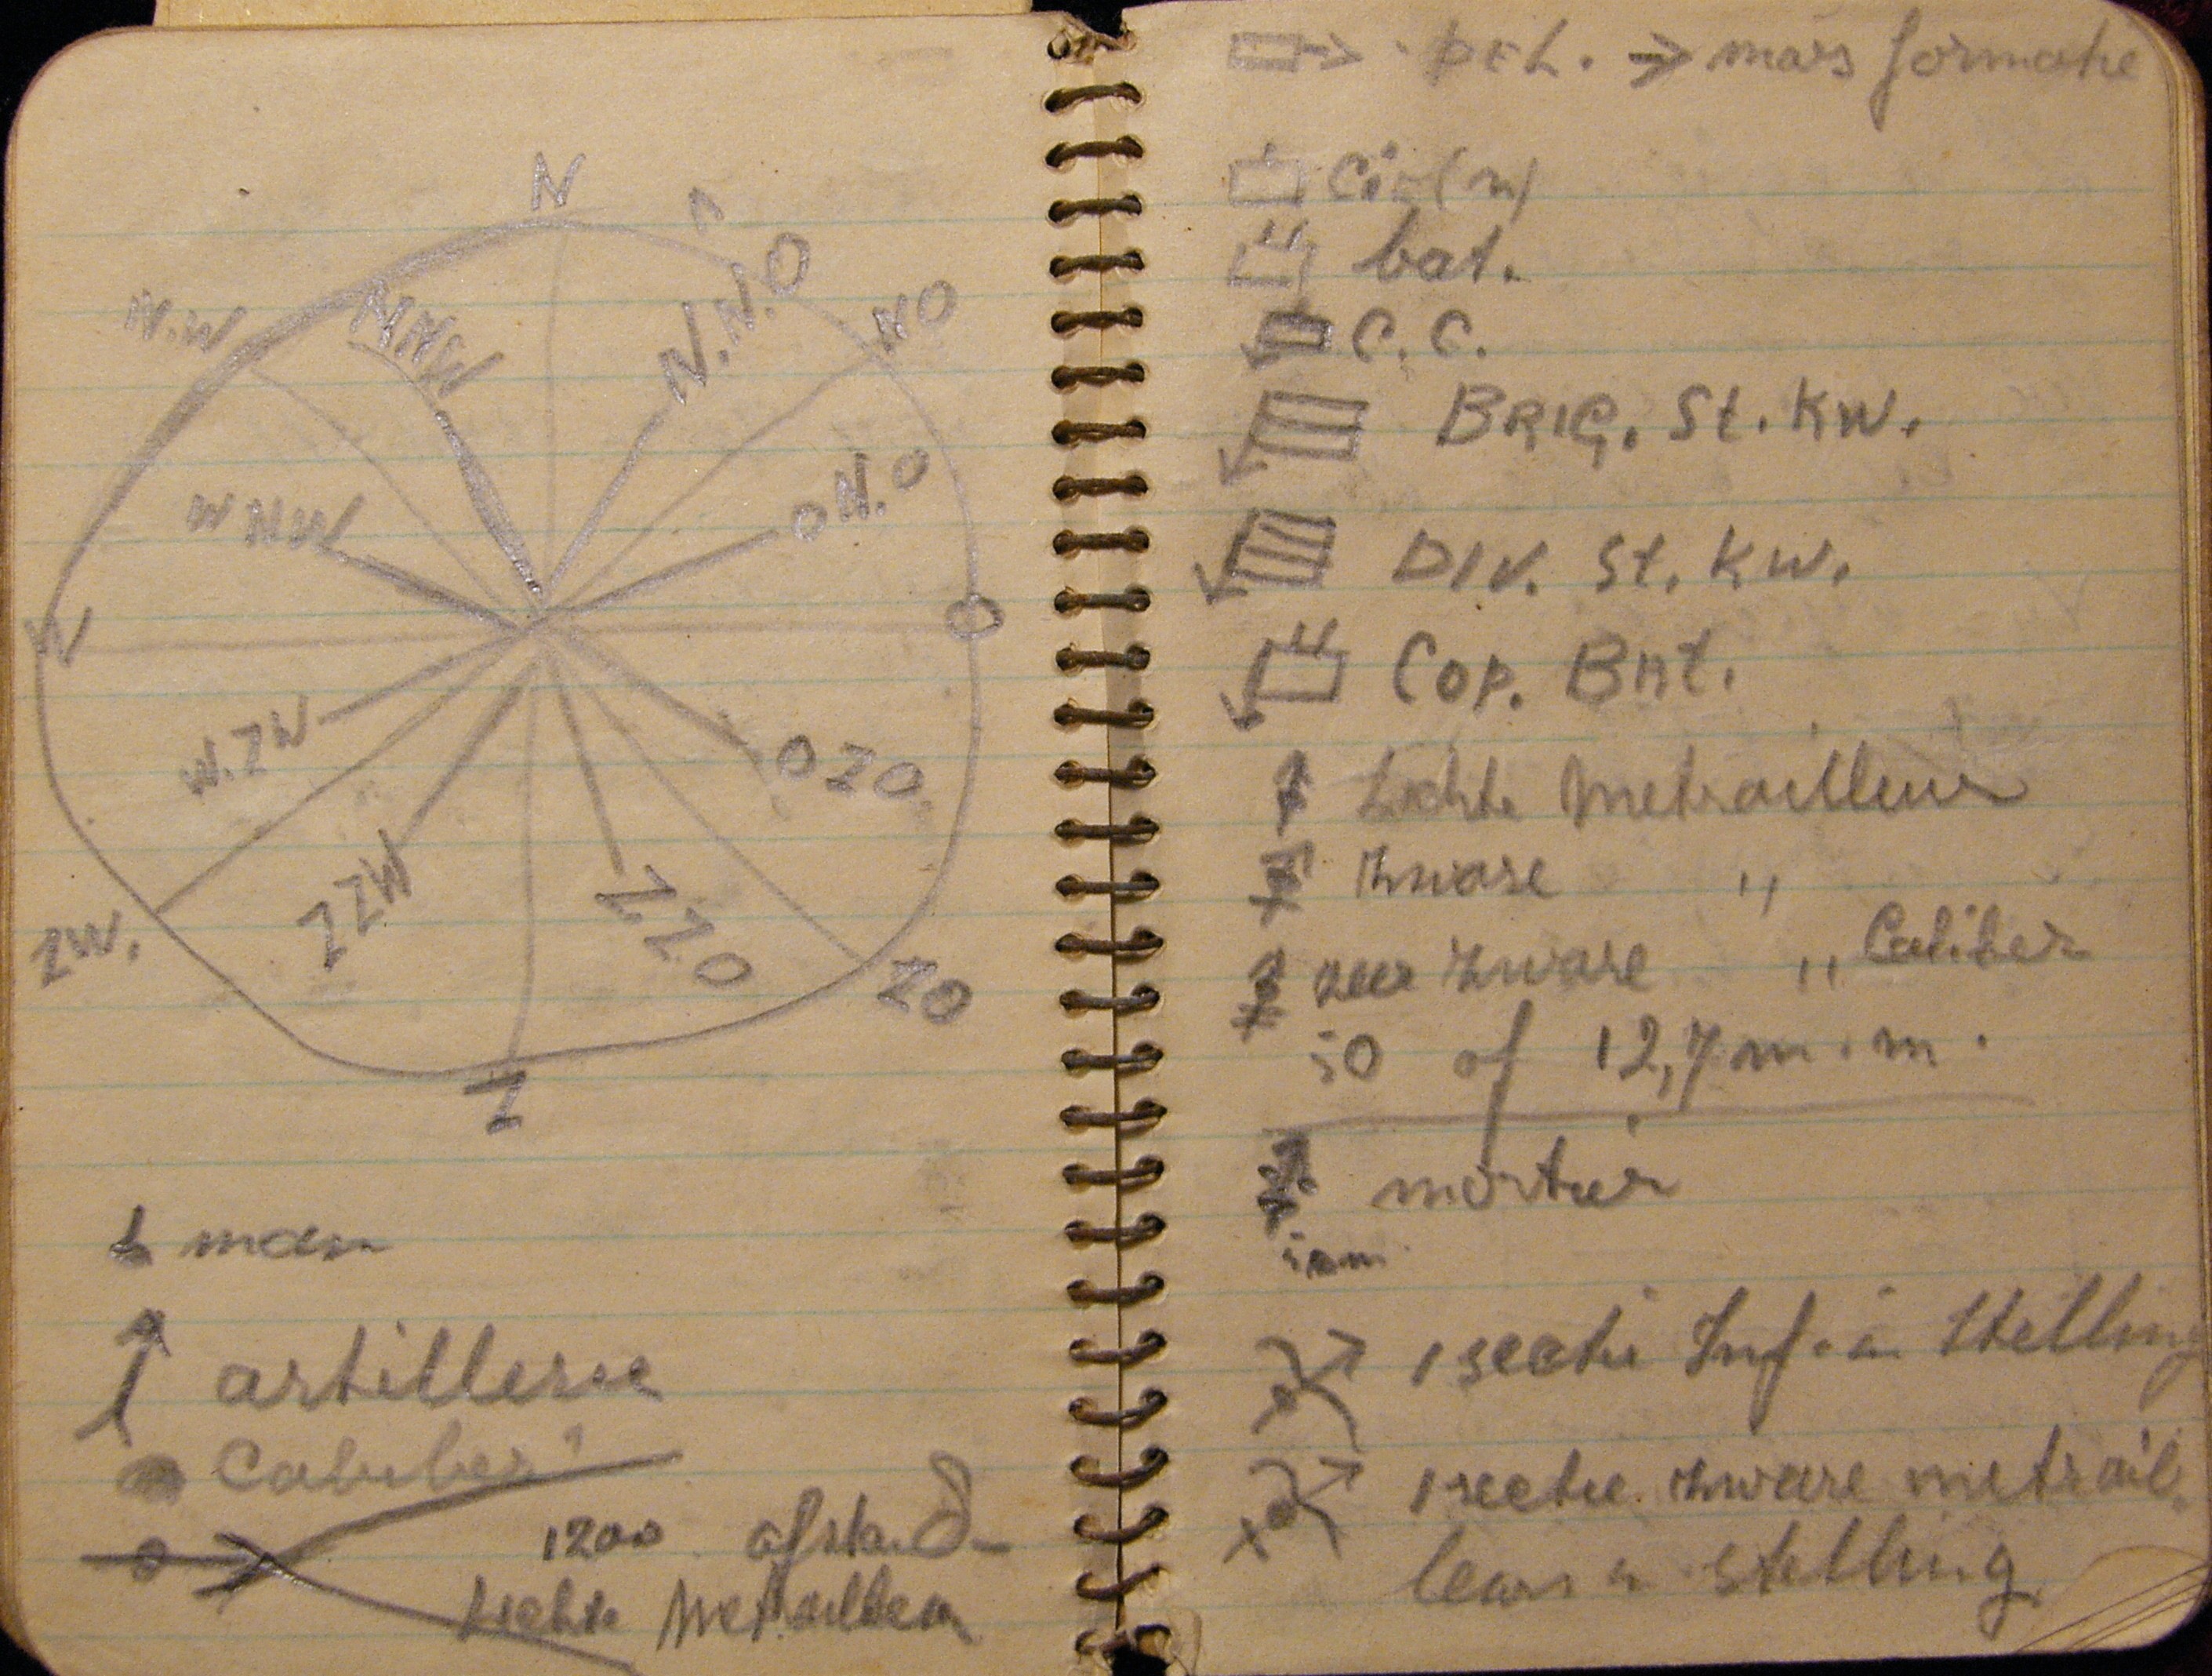 N
N.W
NNW
N.N.O
NO
WNW
ONO
W
O
W.ZW
OZO
ZW.
ZZW
ZZO
ZO
Z
man
artillerie
Caliber
1200 afstand
Lichte Metrailleur
DEL. → mars formatie
Cie(n)
bat.
C.C.
BRIG. St. KW.
DIV. St. KW.
COP. BAT.
Lichte Metrailleur
Zware "
zeer Zware " Caliber
50 of 12,7 m.m.
mortier
1 sectie Inf. in Stelling
1 sectie zware metrail.
leurs in stelling